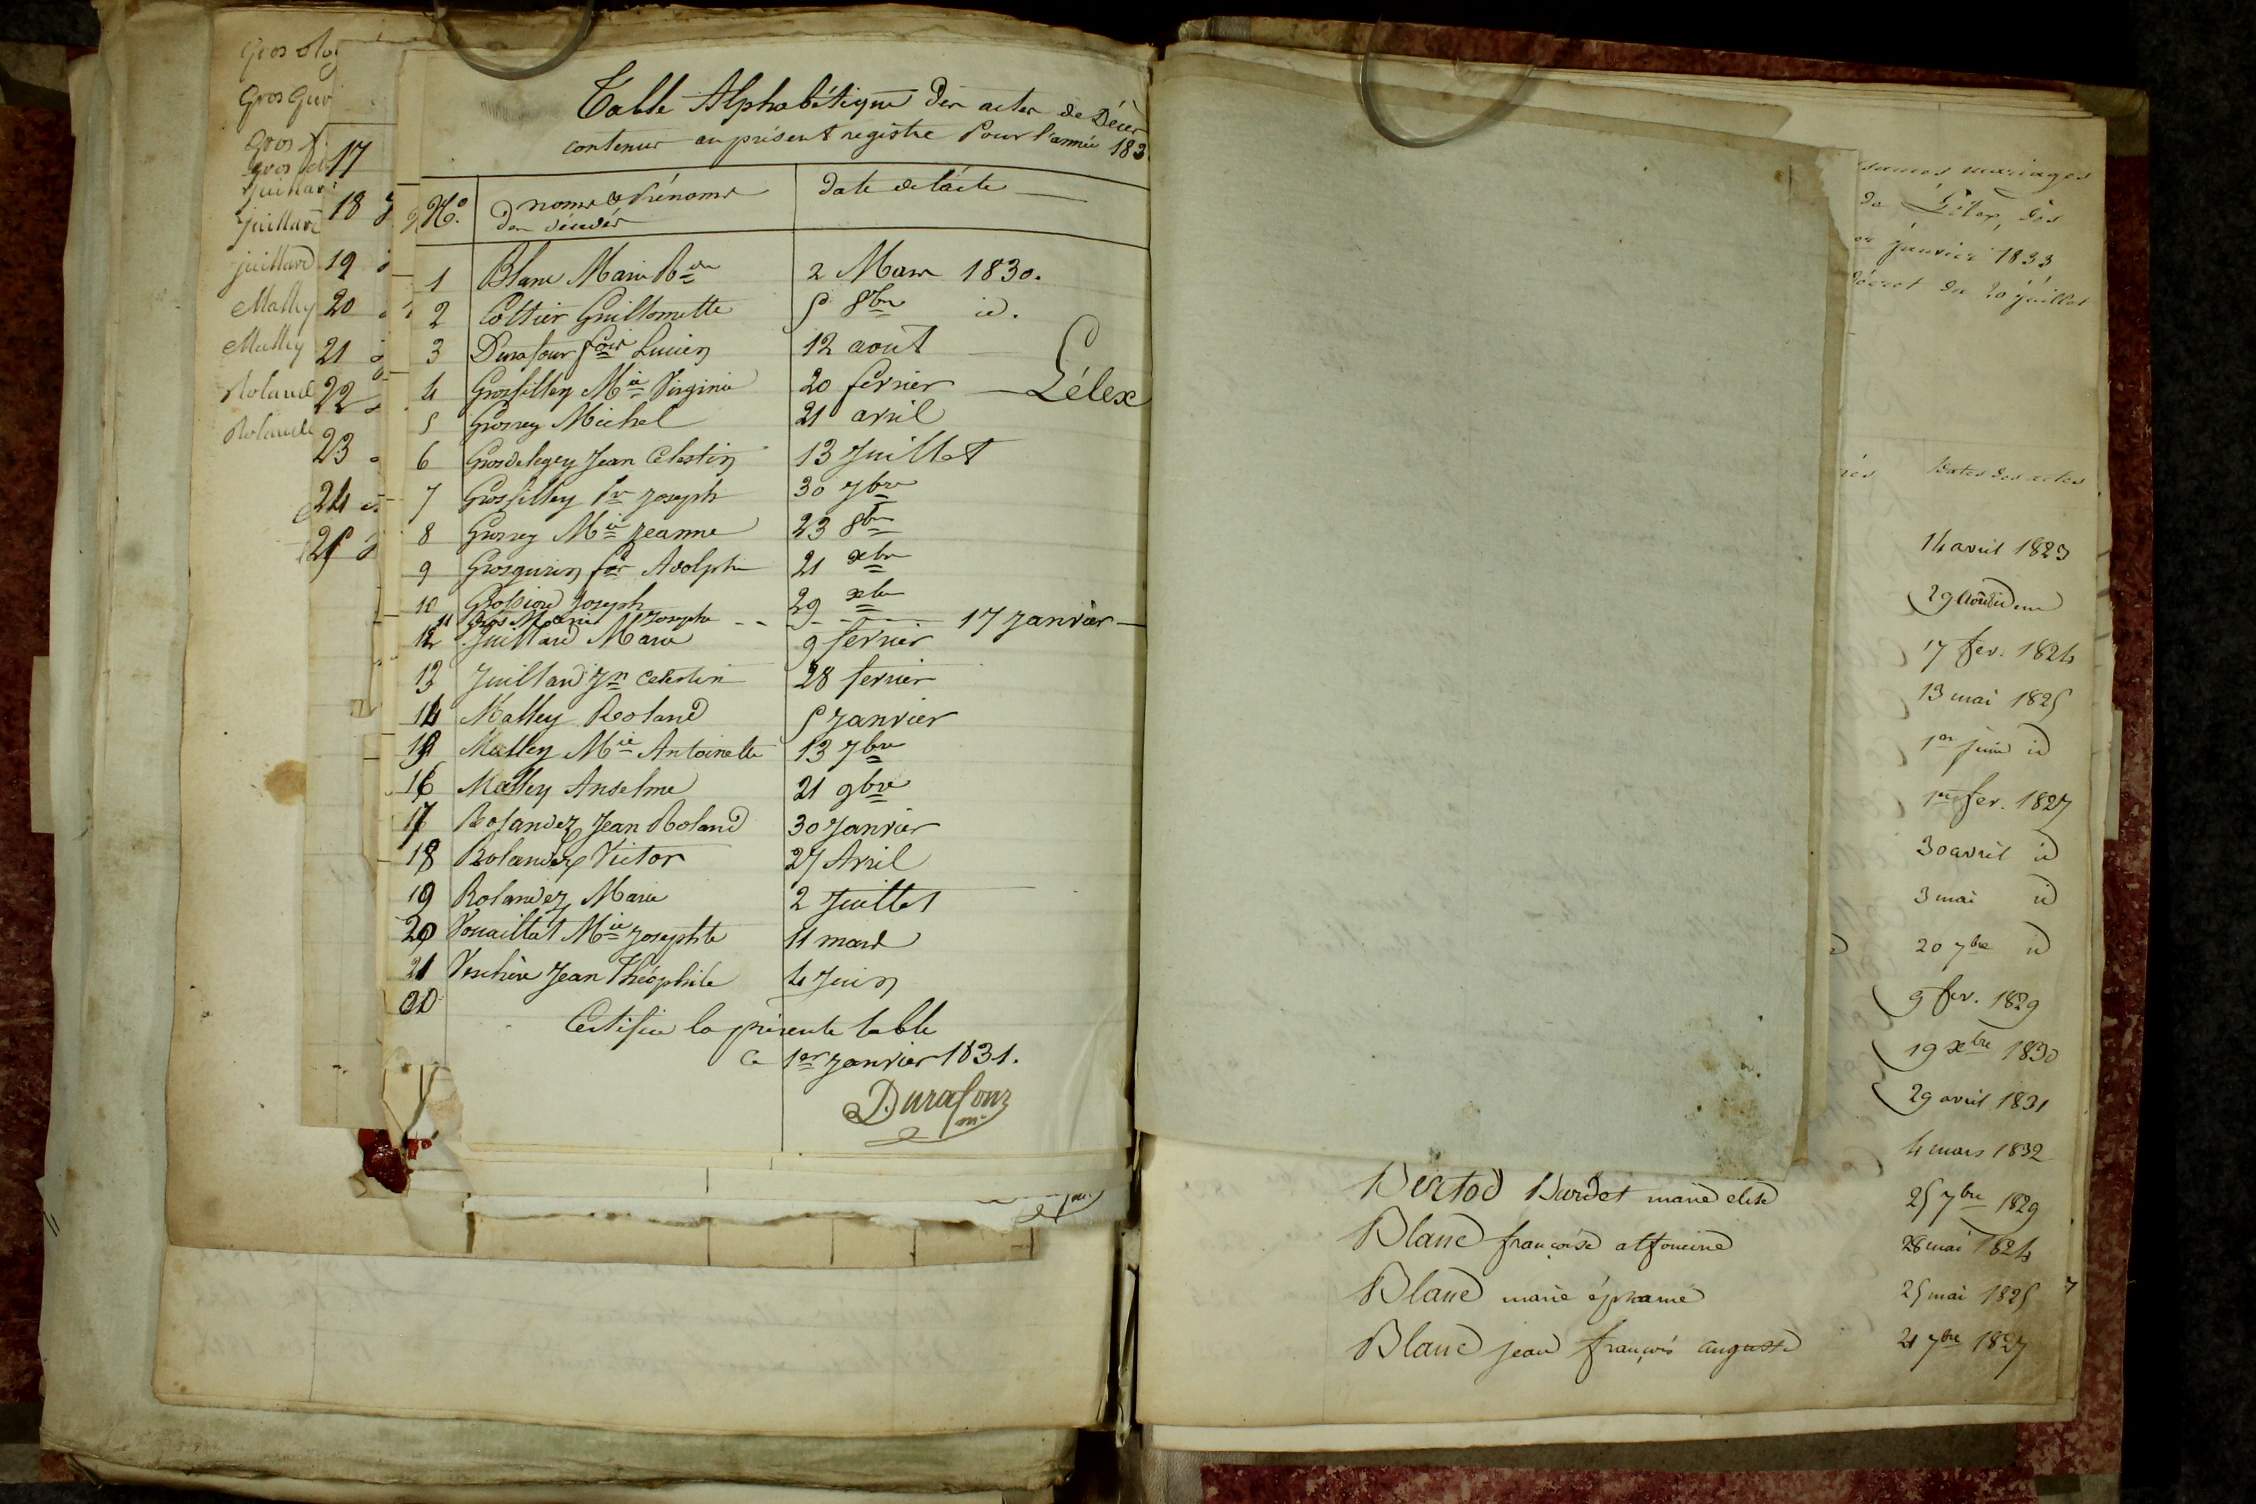 Gros
Gros Guri
Gros
Gros
Juillard
Juillard
Juillard
Malley
Malley
Roland
Roland
17
18
19
20
21
22
23
24
25
Table Alphabétique des actes de Décès
contenus au présent registre Pour l'année 183
N.o noms et Prénoms date de l'acte
des décédés
1 Blanc Marie Rde 2 Mars 1830.
2 Cottier Guillomette 5 8bre id.
3 Durafour fçois Lucien 12 août
4 Grosfilley Mie Virginie 20 fevrier Lélex
5 Grosrey Michel 21 avril
6 Grosdelegey Jean Celestin 13 Juillet
7 Grosfilley Pre Joseph 30 7bre
8 Grosrey Mie Jeanne 23 8bre
9 Grosgurin fois Adolphe 21 xbre
10 Joseph 29 xbre
11 Gros Marie Josephe 17 Janvier
12 Juillard Marie 9 fevrier
13 Juillard Jn Celestin 28 fevrier
14 Malley Roland 5 Janvier
15 Malley Mie Antoinette 13 7bre
16 Malley Anselme 21 9bre
17 Rolandez Jean Roland 30 Janvier
18 Rolandez Victor 27 Avril
19 Rolandez Marie 2 Juillet
20 Vouaillat Mie Josephte 11 mars
21 Jean Théophile 4 Juin
Certifiée la présente table
ce 1er Janvier 1831.
Durafour
mre
mariages
de Lélex, dès
janvier 1833
décret du 20 juillet
Dates des actes
14 avril 1823
29
17 fev. 1824
13 mai 1825
1er juin id
1er fev. 1827
30 avril id
3 mai id
20 7bre id
9 fev. 1829
19 xbre 1830
29 avril 1831
4 mars 1832
Bertod Burdet marie elise 25 7bre 1829
Blanc françoise alfonsine 28 mai 1824
Blanc marie 25 mai 1825
Blanc jean françois auguste 21 7bre 1827